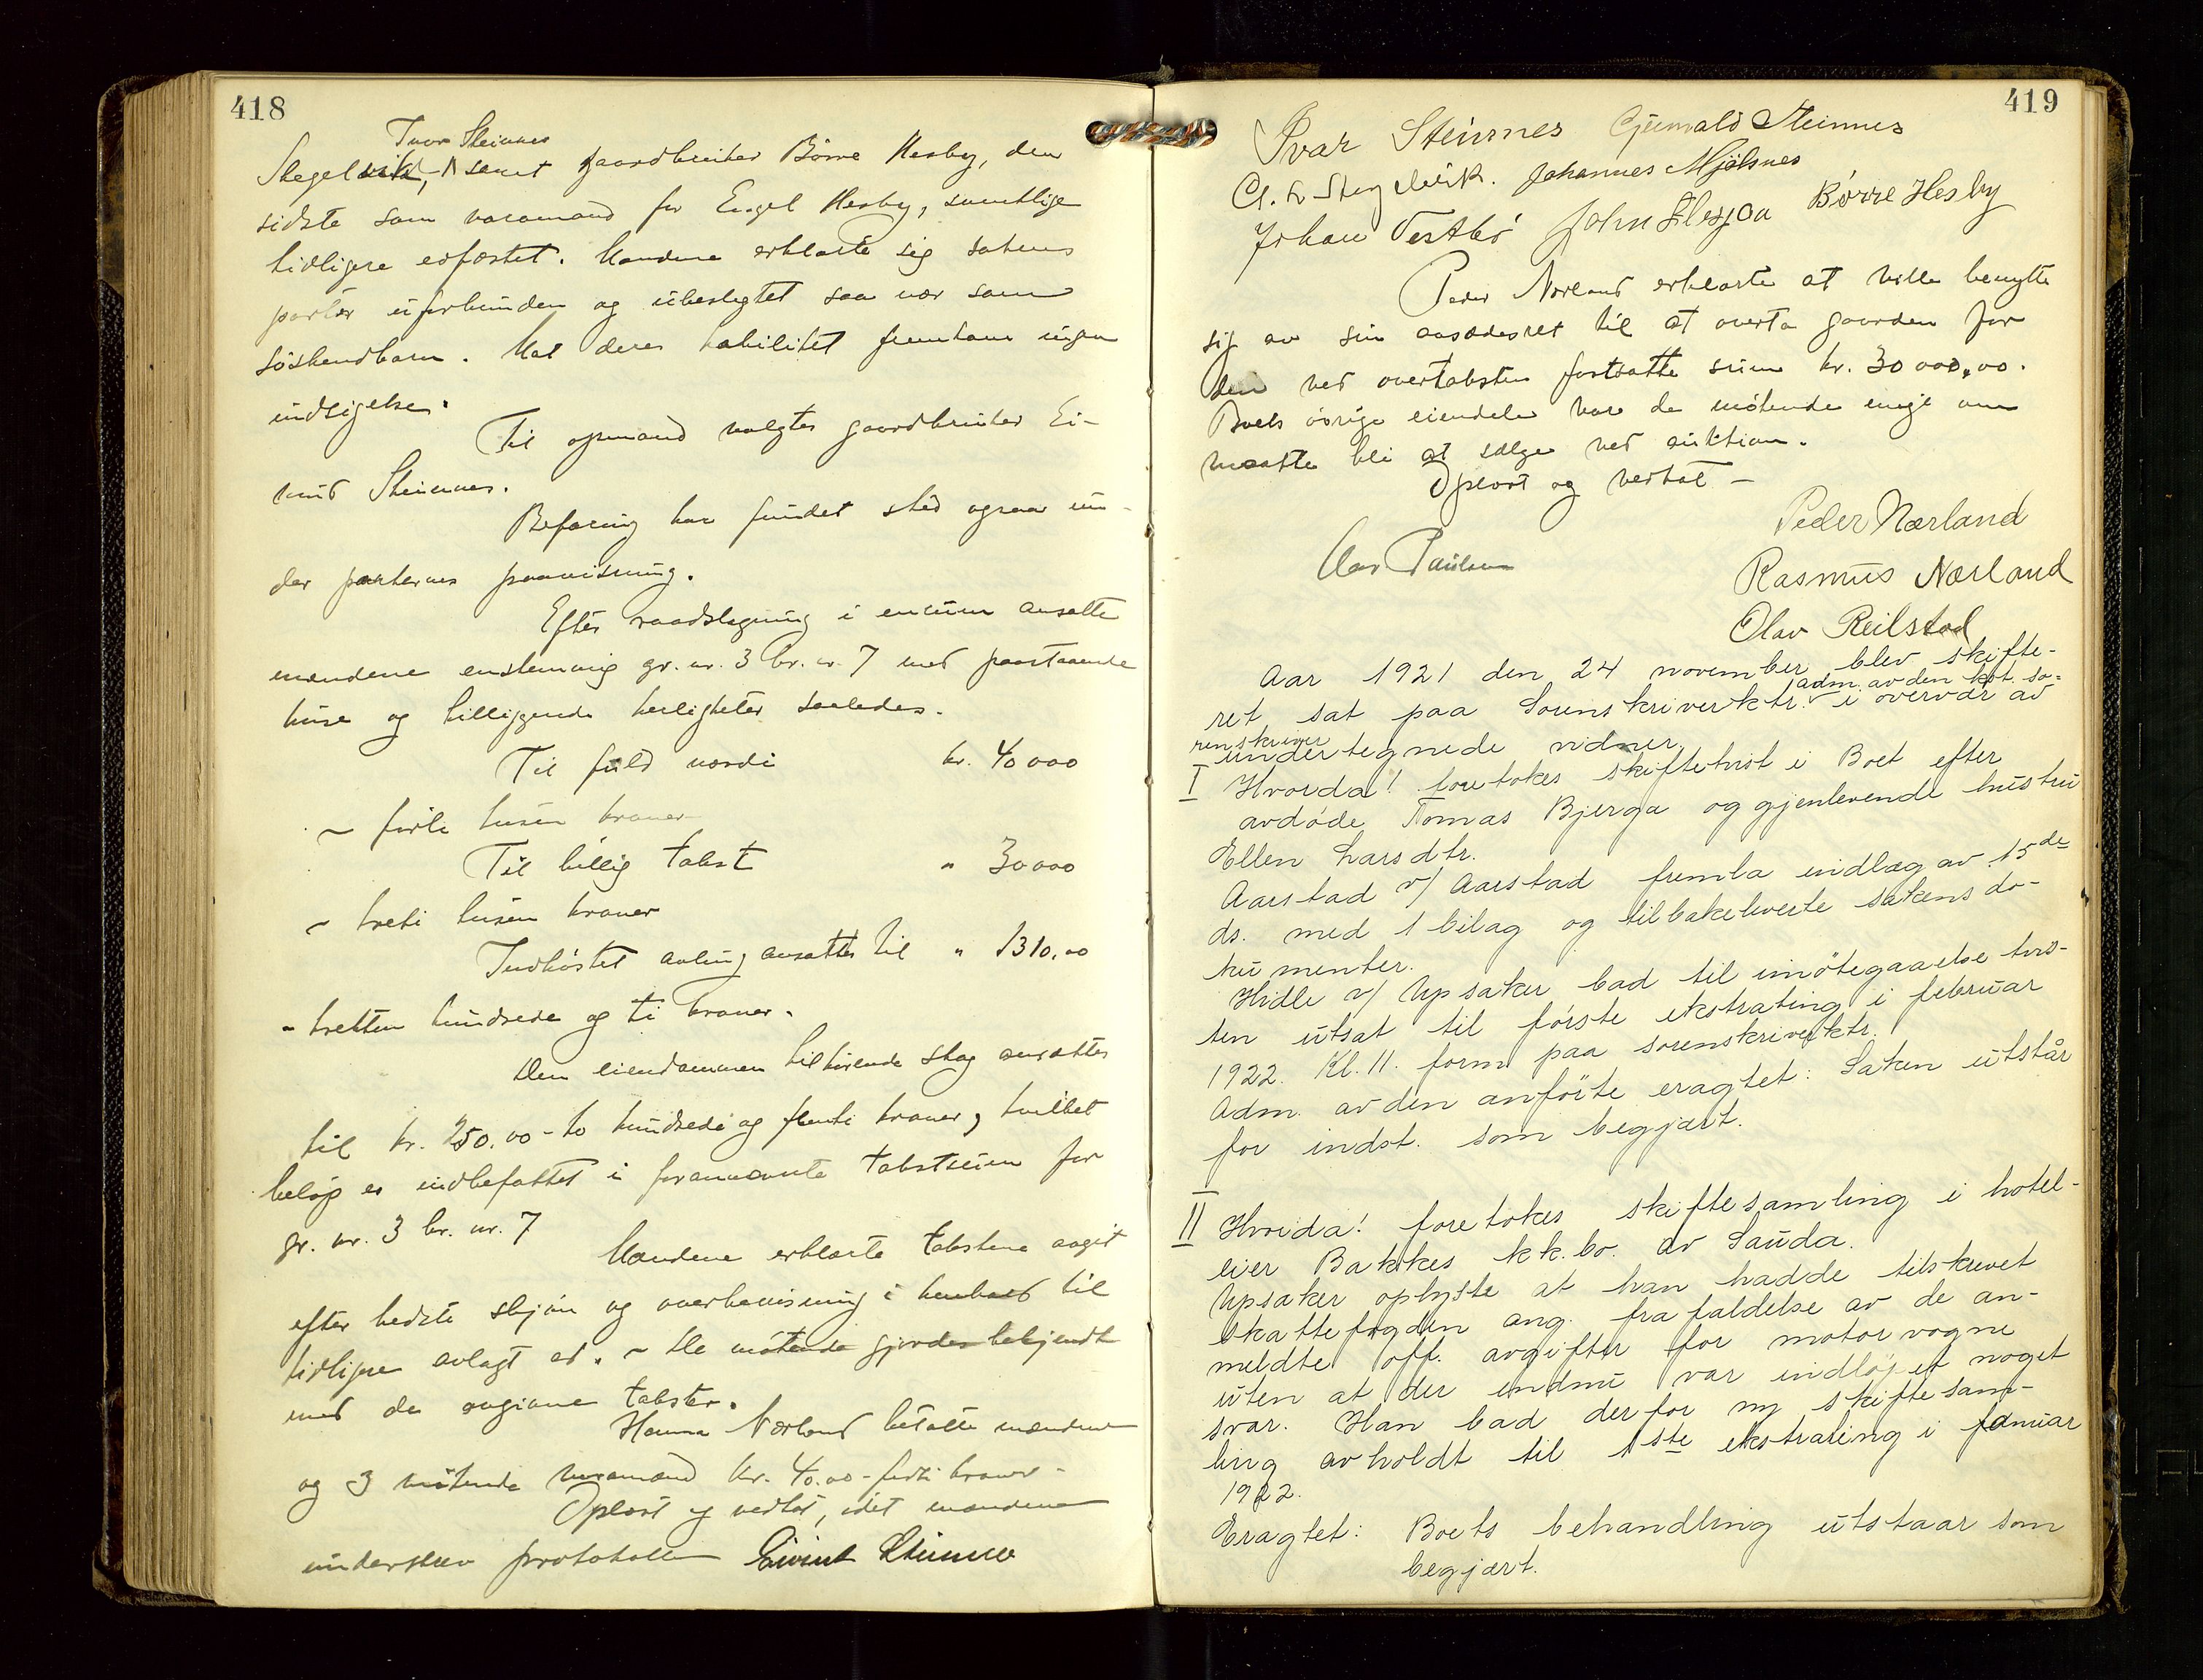 418
Ivar Steinnes
Stegelvik, samt gaardbruker Börre Hesby, den
sidste som varamand for Engel Hesby, samtlige
tidligere edfæstet. Mændene erklærte sig sakens
parter uforbunden og ubeslegtet saa nær som
söskendbarn. Mot deres habilitet fremkom ingen
indsigelse.
Til opmand valgtes gaardbruker Ei-
vind Steinnes.
Befaring har fundet sted ogsaa un-
der parternes paavisning.
Efter raadslagning i enrum ansatte
mændene enstemmig gr. nr. 3 br. nr. 7 med paastaaende
huse og tilliggende herligheter saaledes.
Til fuld værdi kr. 40000
- förti tusen kroner
Til billig takst " 30000
- treti tusen kroner
Indhöstet avling ansattes til " 1310,00
- tretten hundrede og ti kroner.
Den eiendommen tilhörende skog ansattes
til kr. 250,00 - to hundrede og femti kroner, hvilket
belöp er indbefattet i forannævnte takstsum for
gr. nr. 3 br. nr. 7
Mændene erklærte takstene avgit
efter bedste skjön og overbevisning i henhold til
tidligere avlagt ed. - De mötende gjordes bekjendt
med de avgivne takster.
Hanna Nærland betalte mændene
og 3 mötende varamænd kr. 40.00 - förti kroner -
Oplæst og vedtat, idet mændene
underskrev protokollen Eivind Steinnes
419
Ivar Steinnes Steinnes
Stegelvik. Johannes Mjölsnes
Johan Vestbö John Börre Hesby
Peder Nærland erklærte at ville benytte
sig av sin aasædesret til at overta gaarden for
den ved overtaksten fastsatte sum kr. 30000,00.
Boets övrige eiendele var de mötende enige om
maatte bli at sælge ved auktion.
Oplæst og vedtat -
Peder Nærland
Paulsen
Rasmus Nærland
Olav Reilstad
Aar 1921 den 24 november blev skifte-
ret sat paa Sorenskriverktr. adm. av den kst. so-
renskriver i overvær av
undertegnede vidner.
I Hvorda! foretokes skiftetvist i Boet efter
avdöde Tomas Bjerga og gjenlevende hustru
Ellen Larsdtr.
Aarstad v/ Aarstad fremla indlæg av 15de
ds. med 1 bilag og tilbakeleverte sakens do-
kumenter.
Hidle v/ Upsaker bad til imötegaaelse tvis-
ten utsat til förste ekstrating i februar
1922. Kl. 11. form paa sorenskriverktr.
Adm. av den anförte eragtet: Saken utstår
for indst. som begjært.
II Hvorda! foretokes skiftesamling i hotel-
eier Bakkes kk.bo. av Sauda.
Upsaker oplyste at han hadde tilskrevet
skattefogden ang. frafaldelse av de an-
meldte off. avgifter for motorvogne
uten at der endnu var indlöpet noget
svar. Han bad derfor ny skiftesam-
ling avholdt til 1ste ekstrating i januar
1922.
Eragtet: Boets behandling utstaar som
begjært.